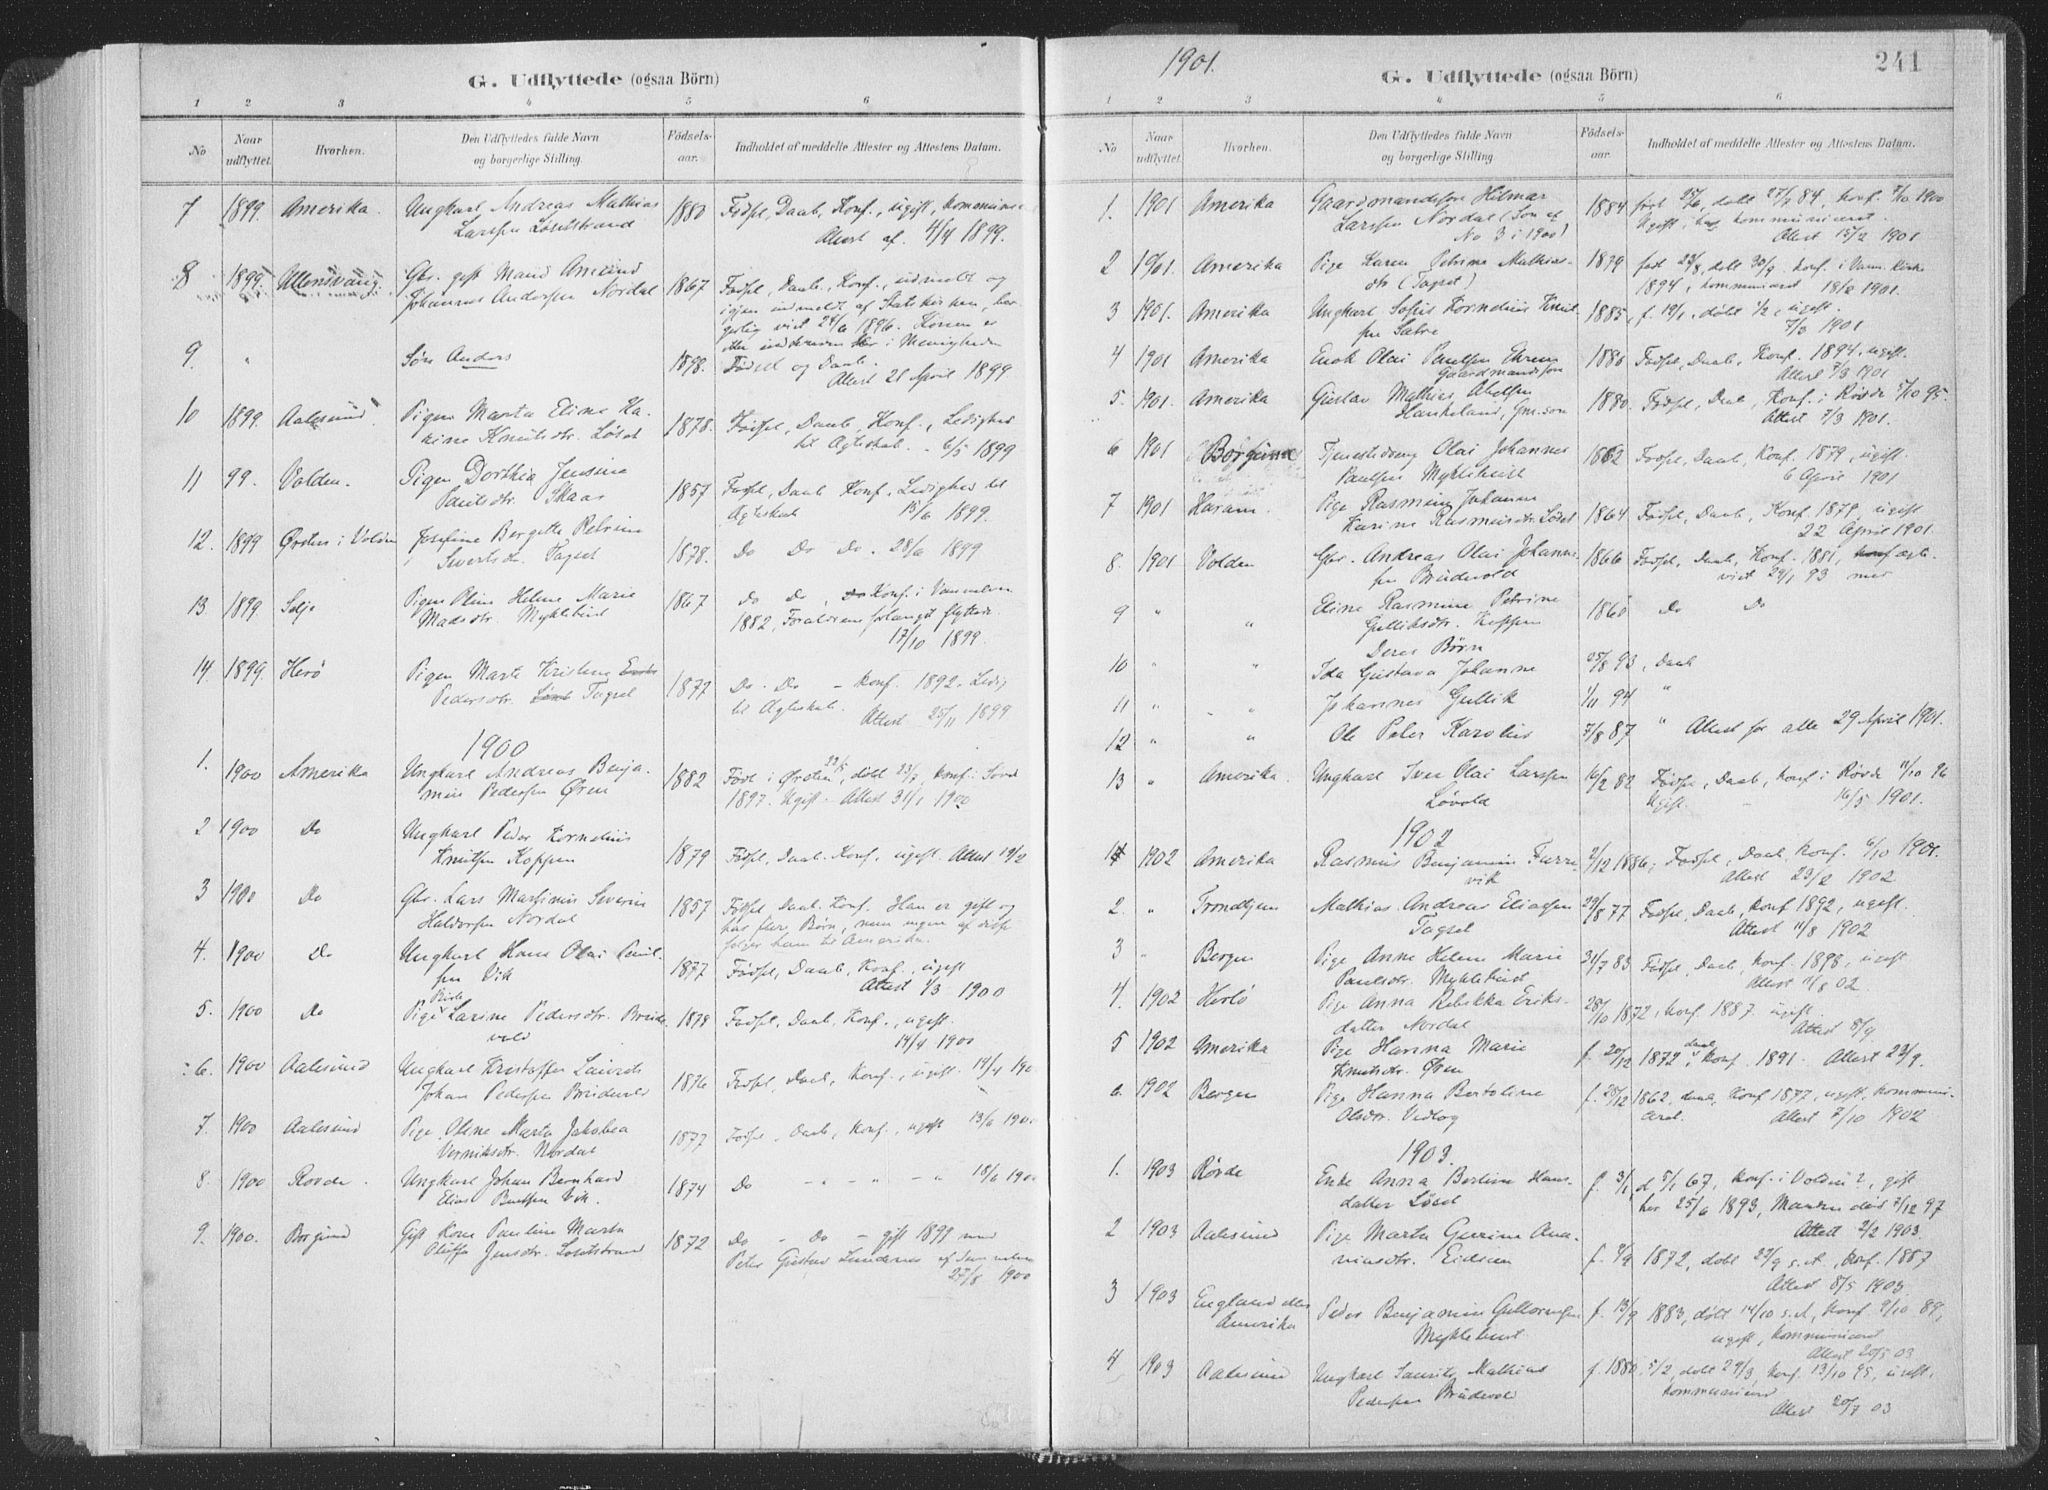 G. Udflyttede (ogsaa Börn)
1 2 3 4 5 6
No Naar udflyttet. Hvorhen. Den Udflyttedes fulde Navn og borgerlige Stilling. Fødsels-aar. Indholdet af meddelte Attester og Attestens Datum.
7 1899. Amerika. Ungkarl Andreas Mathias 1880 Fødsel, Daab, Konf., ugift,
Larssen Løsetstrand Attest af. 4/4 1899.
8 1899. Ullensvang. Gbr. gift Mand Amund 1867 Fødsel, Daab, Konf., udmeldt og
Johannes Anderssen Nordal igjen indmeldt af Statskirken, bor-
gerlig viet 24/6 1896. Konen er
i Menigheden
9. " Søn Anders 1898. Fødsel og Daab.
Attest 21 April 1899
10 1899. Aalesund. Pigen Marta Eline Ka- 1878. Fødsel, Daab, Konf., Ledighed
rine Knutsdtr. Løset til Ægteskab. - 6/5 1899
11 99. Volden. Pigen Dorthea Jensine 1857 Fødsel, Daab Konf., Ledighed til
Paulsdtr. Skaar Ægteskab 15/6 1899.
12. 1899 Ørsten i Volden Josefine Bergitte Petrine 1878. Do Do Do. 28/6 1899
Sivertsdtr. Tagset
13 1899. Selje Pigen Oline Helene Marie 1867 Do Do, Do Konf. i Vannelven
Madsdtr. Myklebust 1882, Forældrene forlængst flyttede.
17/10 1899.
14. 1899. Herø Pigen Marte Kristine
Pedersdtr. Løset Tagset 1877 Do. Do - Konf. 1892. Ledig
til Ægteskab. Attest 25/11 1899
1900
1. 1900 Amerika Ungkarl Andreas Benja- 1882 Født i Ørsten 22/5, døbt 23/7, konf. i
min Pederssen Øren 1897. Ugift. Attest 31/1 1900
2 1900 Do Ungkarl Peder Kornelius
Knutsen Koppen 1879 Fødsel, Daab. Konf., ugift. Attest 19/2
3 1900 Do Gbr. Lars Martinus Severin 1857 Fødsel, Daab, Konf. Han er gift og
Haldorsen Nordal har flere Børn, men ingen af disse
følger ham til Amerika.
4. 1900 Do Ungkarl Hans Olai
sen Vik 1877 Fødsel, Daab, Konf., ugift
Attest 1/3 1900
5. 1900 Do Pige Larine Pedersdtr. Brude- 1878 Fødsel, Daab, Konf., ugift.
vold 14/4 1900
6. 1900 Aalesund Ungkarl Kristoffer Laurits 1876 Fødsel, Daab, Konf., ugift. 14/4 1900
Johan Pederssen Brudevold
7. 1900 Aalesund Pige Oline Marta Jakobea 1877 Fødsel, Daab, Konf., ugift 13/6 1900
Nordal
8. 1900 Rovde. Ungkarl Johan Bernhard 1874 Do - " - " - " 18/6 1900
Elias Vik.
9. 1900. Borgund Gift Kone Pauline Marta 1872 Do - Do - gift 1899 med
Oluffa Jensdtr. Løsetstrand Peter Gustav af
27/8 1900
1901.
241
G. Udflyttede (ogsaa Börn)
1 2 3 4 5 6
No Naar udflyttet. Hvorhen. Den Udflyttedes fulde Navn og borgerlige Stilling. Fødsels-aar. Indholdet af meddelte Attester og Attestens Datum.
1. 1901 Amerika Gaardmandssøn Hilmar 1884 født 15/6, døbt 27/7 84, konf. 7/10 1900
Larssen Nordal (Søn af Ugift, kommuniceret.
No 3 i 1900) Attest 15/2 1901
2 1901. Amerika Pige Karen Petrine Mathias- 1879 født 23/8, døbt 30/9. konf. i Vann. Kirke
dtr (Tagset) 1894, kommuniceret 18/2 1901.
3 1901. Amerika Ungkarl Sofus Kornelius Knut- 1885, f. 19/1, døbt 1/2, ugift.
sen Sætre 7/3 1901
4 1901 Amerika Enok Olai Paulsen Ekrem 1880 Fødsel, Daab, Konf. 1894, ugift.
Gaardmandssøn Attest 7/3 1901
5. 1901. Amerika Gustav Mathias Abelsen 1880. Fødsel, Daab, Konf. i Røvde 5/10 95.
Haukeland, Gm. søn Attest 7/3 1901.
6 1901 Borgund Tjenestedreng Olai Johannes 1862 Fødsel, Daab, Konf. 1879, ugift.
Paulsen Myklebust 6 April 1901
7 1901 Haram. Pige Rasmine Johanna 1864 Fødsel, Daab, Konf 1879, ugift
Karine Rasmusdtr. Løset 22 April 1901.
8. 1901 Volden Gbr. Andreas Olai Johannes- 1866 Fødsel, Daab, Konf. 1881, konf ægte-
sen Brudevold viet 29/1 93 med
9 " " Eline Rasmine Petrine 1860 Do Do
Gulliksdtr. Koppen
Deres Børn
10 " " Ida Gustava Johanne 25/8 93, Daab
11 " " Johannes Gullik 1/11 94 "
12 " " Ole Peter Karolus 7/8 87 " Attest for alle 29 April 1901.
13 " Amerika. Ungkarl Iver Olai Larssen 16/2 82 Fødsel, Daab, Konf. i Røvde 11/10 96
Løvold Ugift. 16/5 1901.
1902
1 1902 Amerika Rasmus Benjamin Furre- 2/12 1886; Fødsel, Daab, Konf. 6/10 1901.
vik Attest 23/2 1902
2. " Trondhjem Mathias Andreas Eliassen 29/8 77 Fødsel, Daab, Konf 1892, ugift.
Tagset Attest 11/8 1902
3 " Bergen Pige Anne Helene Marie 31/7 83 Fødsel, Daab, konf. 1898, ugift
Paulsdtr. Myklebust Attest 11/8 02.
4. 1902 Herlö Pige Anna Rebekka Eriks- 28/10 1872, konf. 1887. ugift.
datter Nordal Attest 8/9
5 1902 Amerika Pige Hanna Marie f. 20/12 1872, daab, Konf. 1891. Attest 23/9.
Knutsdtr. Øren
6. 1902 Bergen Pige Hanna Bertoline f. 28/12 1862, daab, Konf 1877, ugift, kommuni-
Olsdtr. Vedlog ceret. Attest 7/10 1902
1903.
1. 1903 Røvde Enke Anna Berline Hans- f. 3/1, d. 5/1 67, konf. i Volden ?, gift
datter Løset her 25/6 1893, Manden død 7/12 97
Attest 2/2 1903.
2 1903 Aalesund Pige Marta Gurine Ana-
niasdtr. Eidseen f. 9/9 1872, døbt 22/9 s.A., Konf. 1887
Attest 8/5 1903.
3 1903 England eller Peder Benjamin f. 13/9 1883, døbt 14/10 s.A., konf. 9/10 89,
Amerika Myklebust ugift, kommuniceret
Attest 20/5 03
4 1903 Aalesund Ungkarl Laurits Mathias f. 1880. 5/2, døbt 29/3, konf. 13/10 95, ugift.
Pedersen Brudevold kommuniceret
Attest 20/7 03